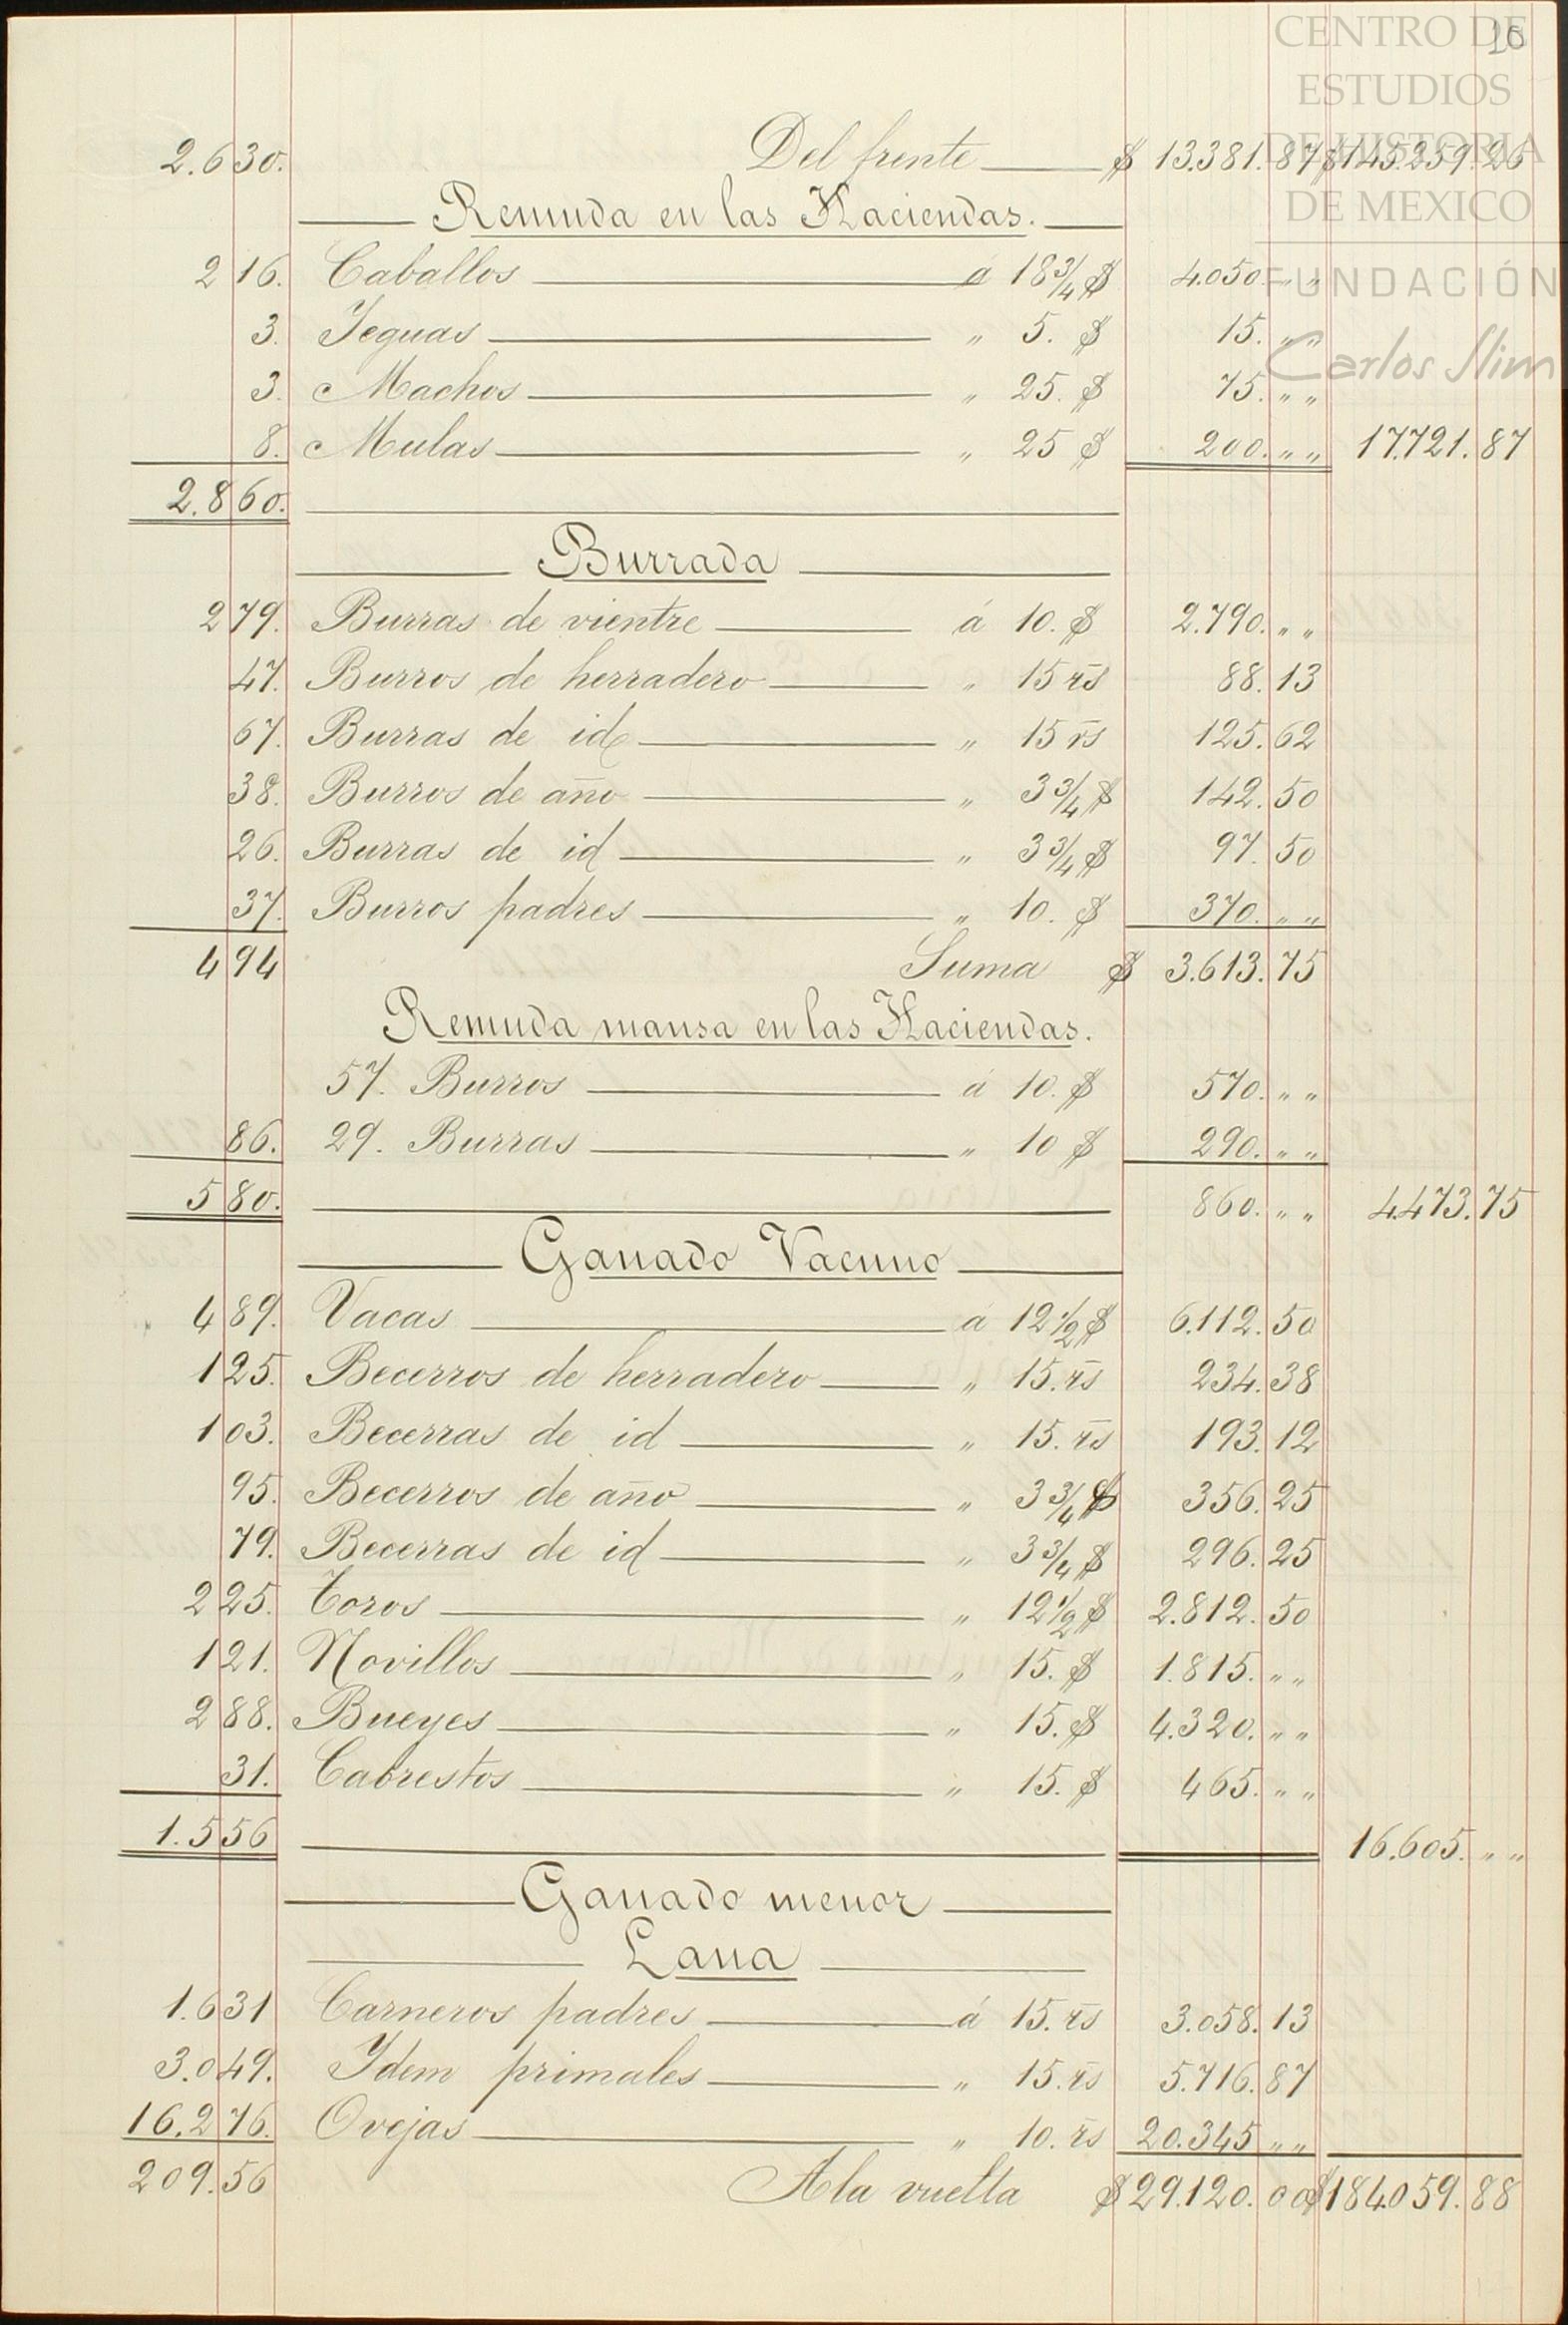 CENTRO DE
26
ESTUDIOS
DE HISTORIA
DE MEXICO
FUNDACIÓN
Carlos Slim
2.630. Del frente $ 13.381.87 $145.259.26
Remuda en las Haciendas.
216. Caballos á 18 3/4 $ 4.050. " "
3. Yeguas " 5. $ 15. " "
3. Machos " 25. $ 75. " "
8. Mulas " 25 $ 200. " " 17.721.87
2.860.
Burrada
279. Burras de vientre á 10. $ 2.790. " "
47. Burros de herradero " 15 rs 88.13
67. Burras de id " 15 rs 125.62
38. Burros de año " 3 3/4 $ 142.50
26. Burras de id " 3 3/4 $ 97.50
37. Burros padres " 10. $ 370. " "
494 Suma $ 3.613.75
Remuda mansa en las Haciendas.
57. Burros á 10. $ 570. " "
86. 29. Burras " 10 $ 290. " "
580. 860. " " 4.473.75
Ganado Vacuno
489. Vacas á 12 1/2 $ 6.112.50
125. Becerros de herradero " 15. rs 234.38
103. Becerras de id " 15. rs 193.12
95. Becerros de año " 3 3/4 $ 356.25
79. Becerras de id " 3 3/4 $ 296.25
225. Toros " 12 1/2 $ 2.812.50
121. Novillos " 15. $ 1.815. " "
288. Bueyes " 15. $ 4.320. " "
31. Cabrestos " 15. $ 465. " "
1.556 16.605. " "
Ganado menor
Lana
1.631 Carneros padres á 15. rs 3.058.13
3.049. Ydem primales " 15. rs 5.716.87
16.276. Ovejas " 10. rs 20.345 " "
209.56 A la vuelta $29.120.00 $184.059.88